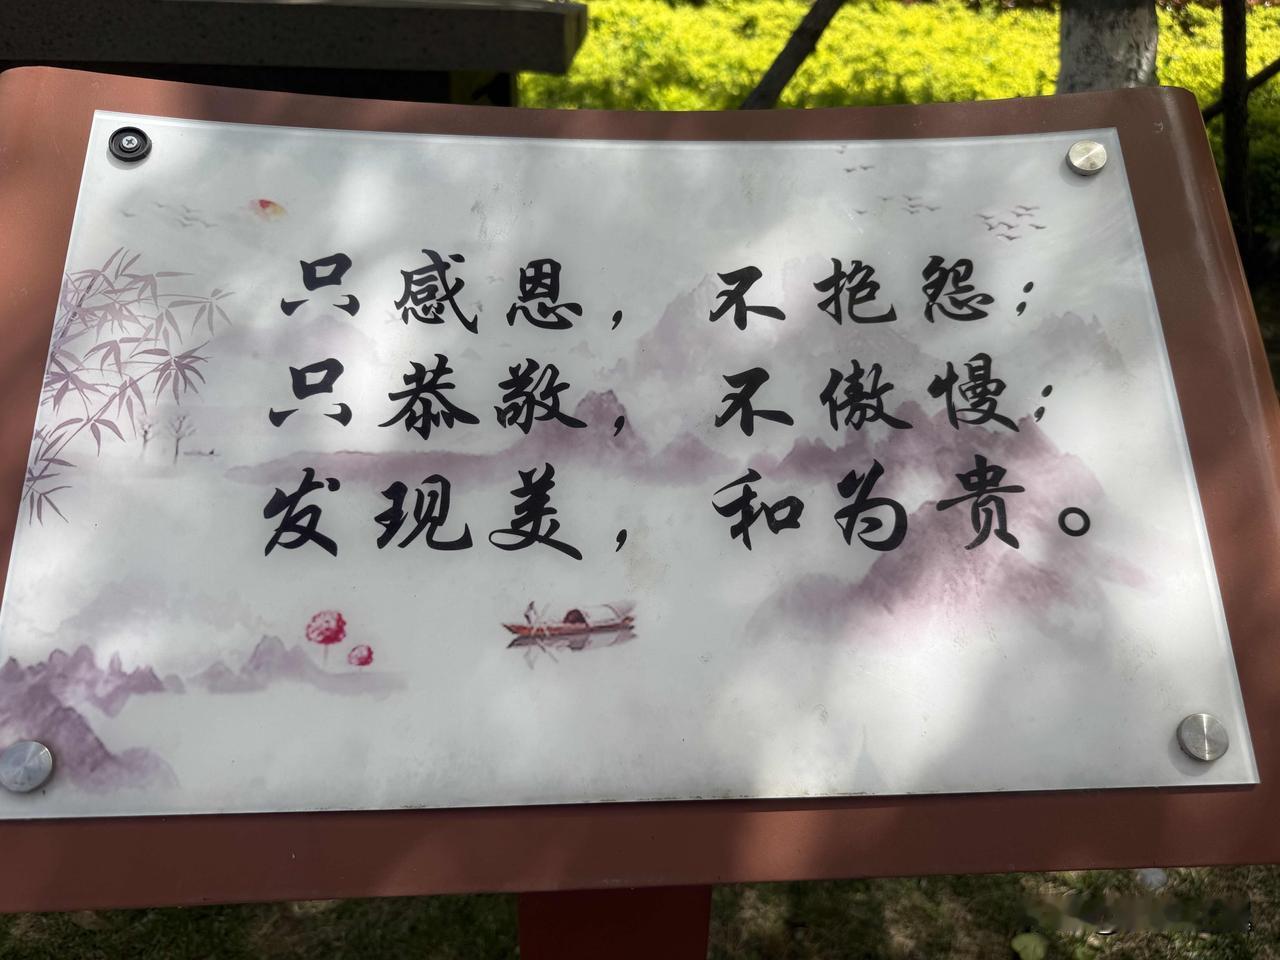 只感恩，不抱怨；
只恭敬，不傲慢；
发现美，和为贵。